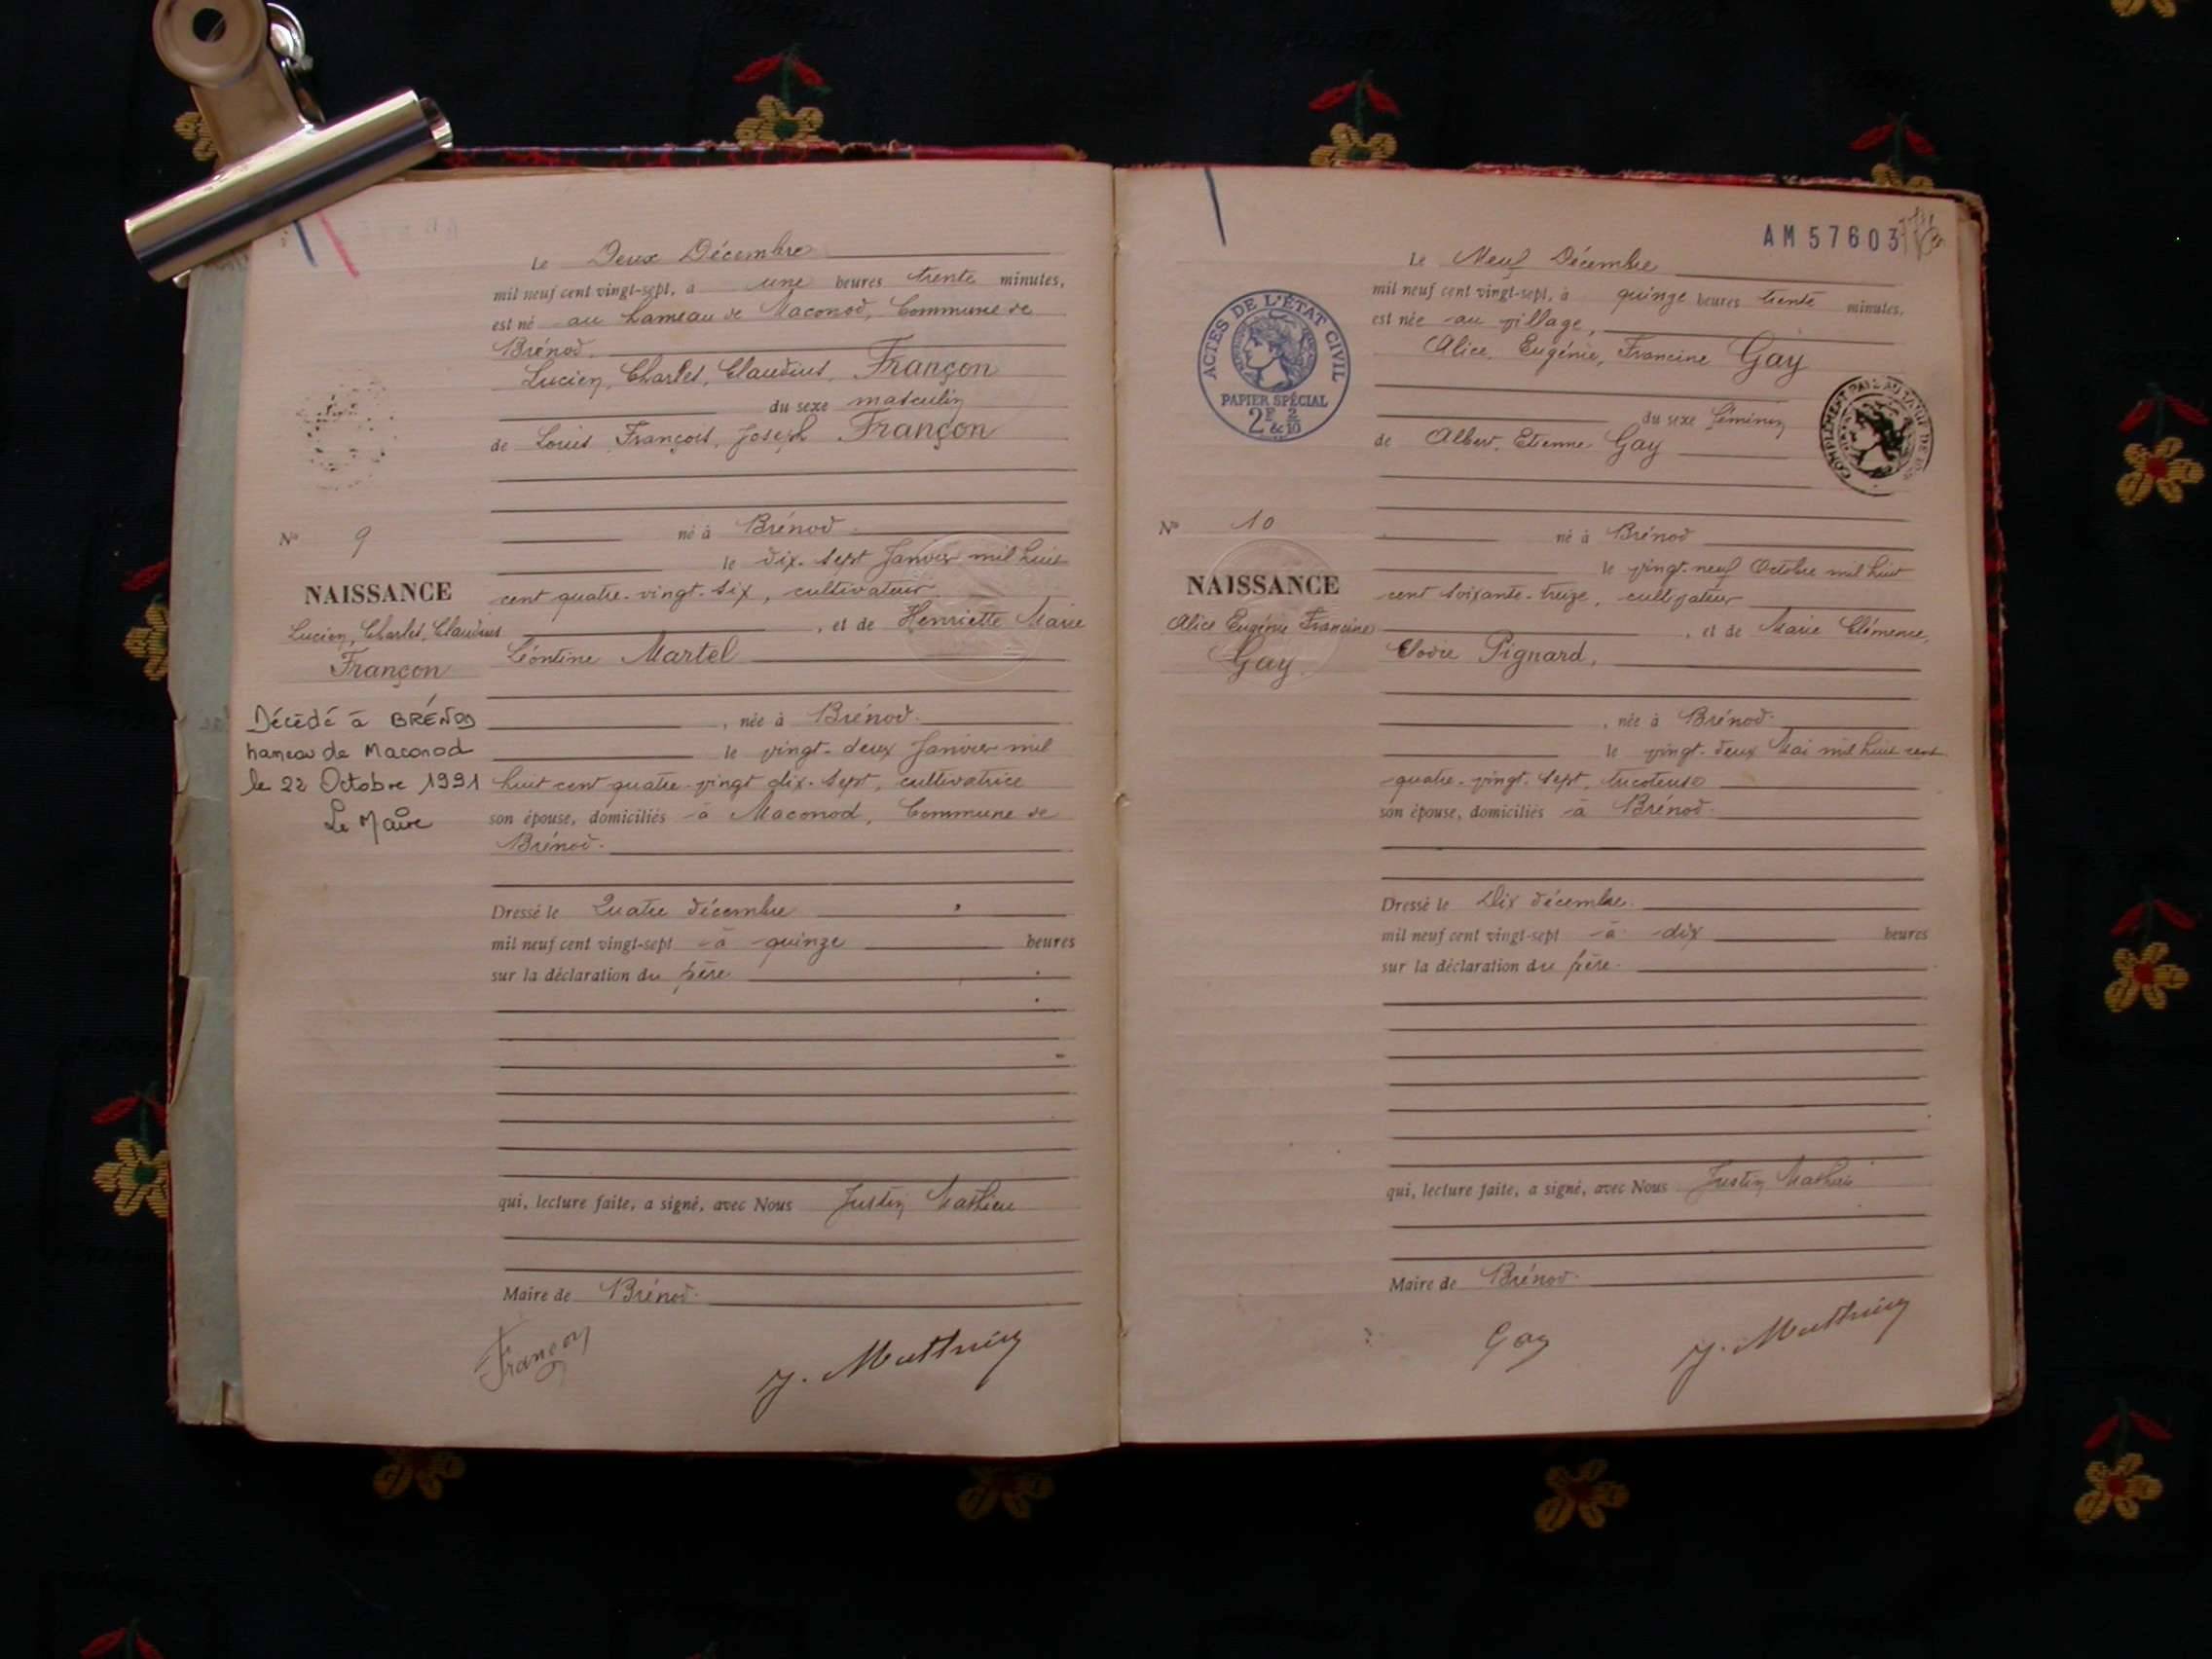 Le Deux Décembre
mil neuf cent vingt-sept, à une heures trente minutes,
est né au hameau de Maconod, Commune de
Brénod.
Lucien, Charles, Claudius, Françon
du sexe masculin
de Louis François, Joseph Françon
né à Brénod
le dix-sept Janvier mil huit
cent quatre-vingt-six, cultivateur
, et de Henriette Marie
Léontine Martel
, née à Brénod.
le vingt-deux Janvier mil
huit cent quatre-vingt dix-sept, cultivatrice
son épouse, domiciliés à Maconod, Commune de
Brénod.
Dressé le Quatre décembre
mil neuf cent vingt-sept à quinze heures
sur la déclaration du père
qui, lecture faite, a signé, avec Nous Justin Mathieu
Maire de Brénod.
Françon
J. Matthieu
N° 9
NAISSANCE
Lucien, Charles, Claudius
Françon
Décédé à BRÉNOD
hameau de Maconod
le 22 Octobre 1991
Le Maire
AM 57603
Le Neuf Décembre
mil neuf cent vingt-sept, à quinze heures trente minutes,
est née au village,
Alice, Eugénie, Francine Gay
du sexe féminin
de Albert, Etienne Gay
né à Brénod
le vingt-neuf Octobre mil huit
cent soixante-treize, cultivateur
, et de Marie Clémence,
Elodie Pignard,
, née à Brénod.
le vingt-deux Mai mil huit cent
quatre-vingt-sept, tricoteuse
son épouse, domiciliés à Brénod.
Dressé le Dix décembre.
mil neuf cent vingt-sept à dix heures
sur la déclaration du père.
qui, lecture faite, a signé, avec Nous Justin Mathieu
Maire de Brénod.
Gay
J. Matthieu
ACTES DE L'ÉTAT CIVIL
PAPIER SPÉCIAL
2F & 2/10
N° 10
NAISSANCE
Alice Eugénie Francine
Gay